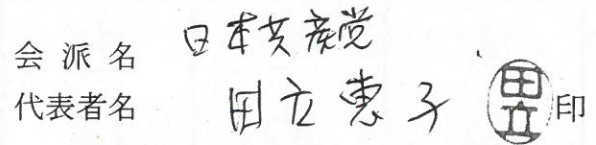 会派名 日本共産党
代表者名 田立恵子 田立 印